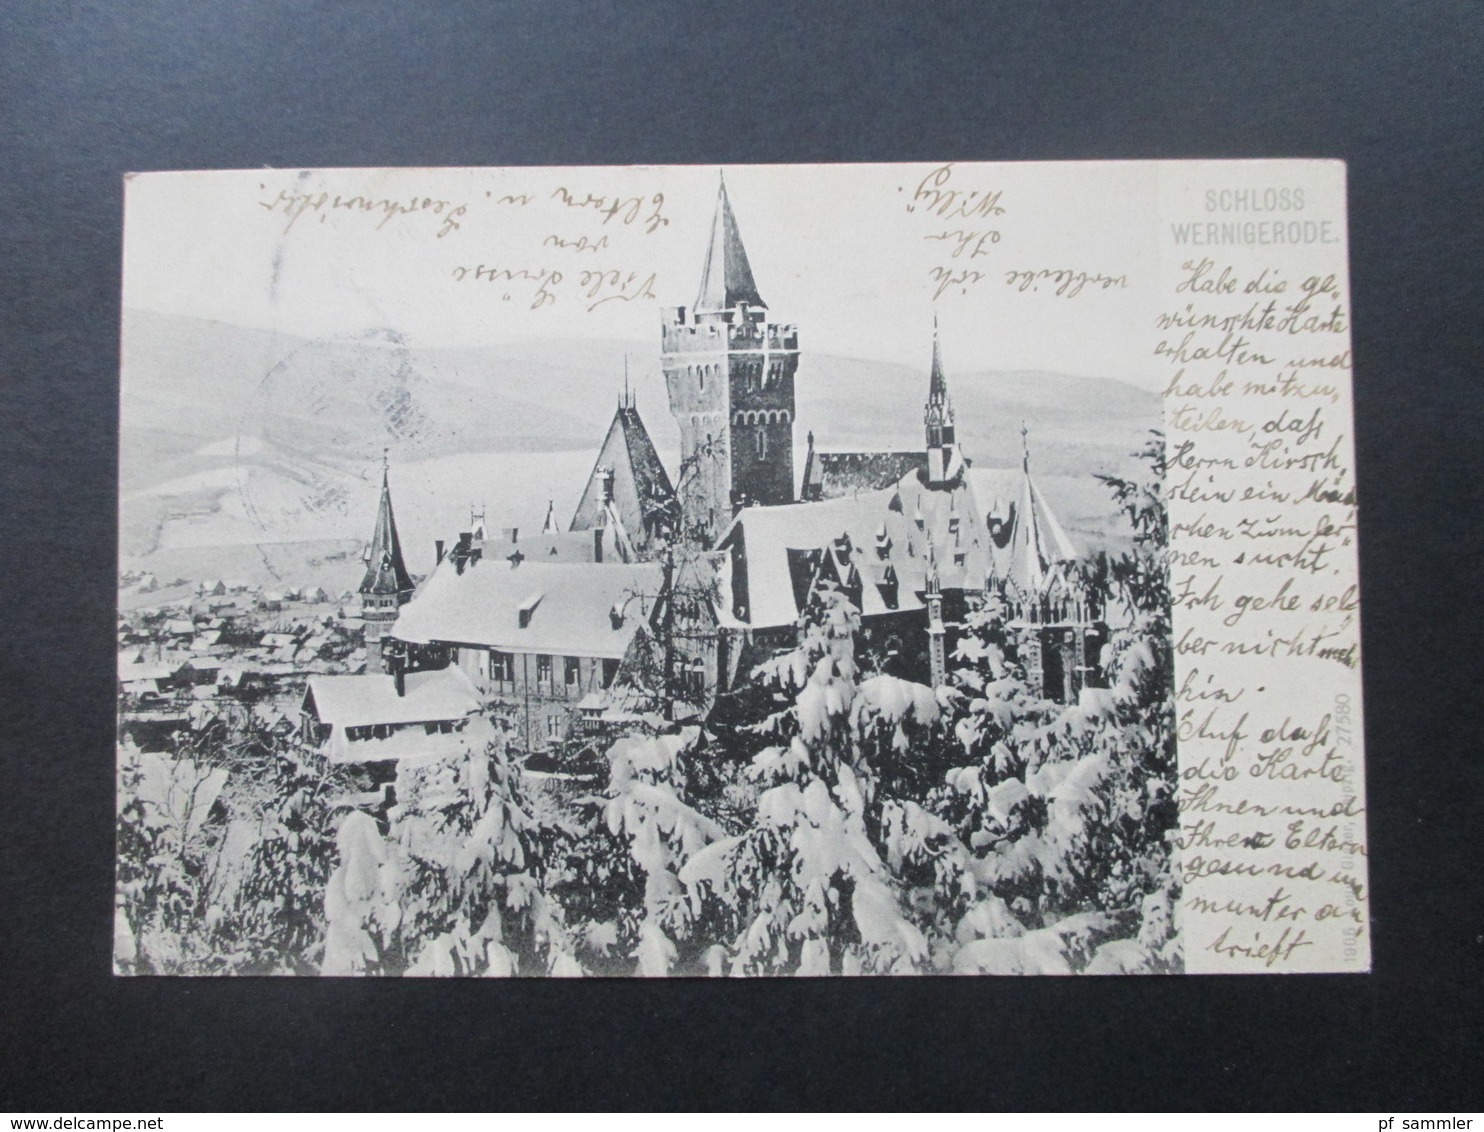 SCHLOSS
WERNIGERODE.
Habe die ge„
wünschte Karte
erhalten und
habe mitzu„
teilen, daß
Herrn Hirsch„
stein ein
chen zum ler„
nen sucht.
Ich gehe sel„
ber nicht
hin.
Auf daß
die Karte
Ihnen und
Ihren Eltern
gesund und
munter an„
trieft
verbleibe ich
Ihr
Willy.
Viele Grüsse
von
Eltern u. Geschwister.
1905 Louis Glaser, Leipzig. 27580
delcampe.net
pf_sammler